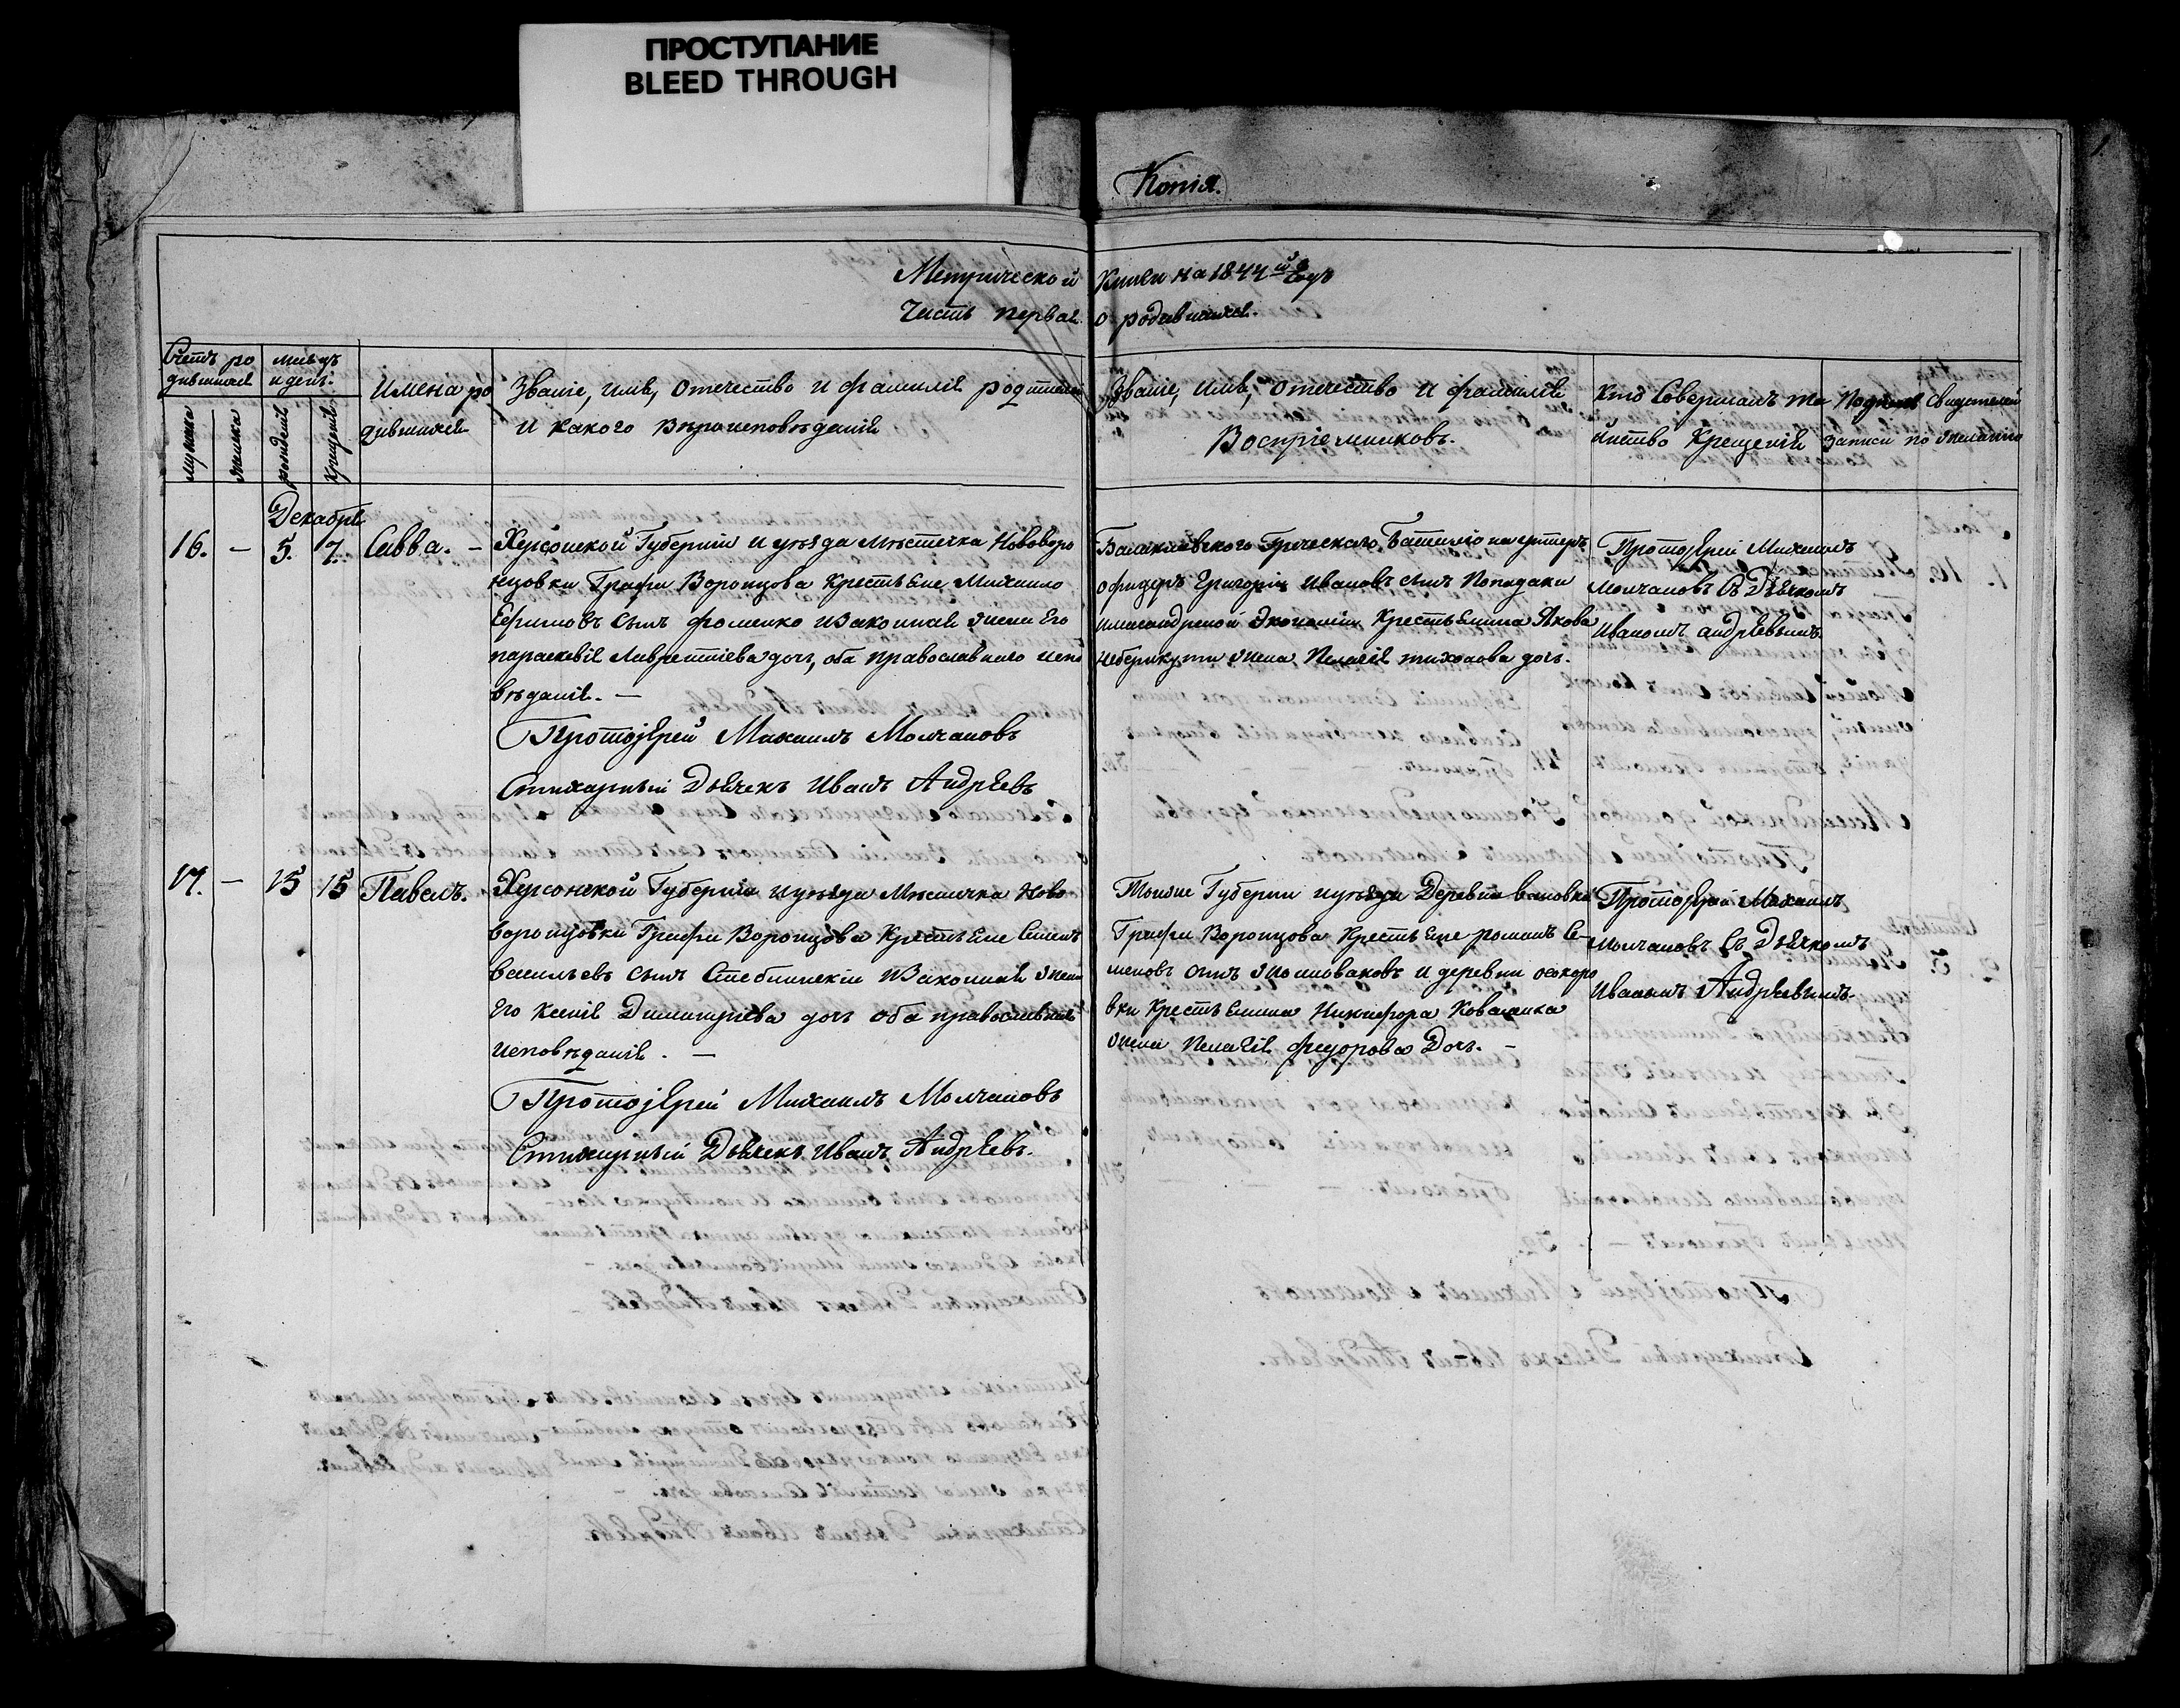 ПРОСТУПАНИЕ
BLEED THROUGH
Копія.
Метрической Книги на 1844й Годъ
Часть первая о родившихся.
Счетъ ро
дившихся
мѣсяцъ
и день.
Имена ро
дившихся
Званіе, имя, отечество и фамилія родителей
и какого вѣроисповѣданія
Званіе, имя, отечество и фамилія
Воспріемниковъ.
Кто Совершалъ та
инство Крещенія
Подпись Свидетелей
записи по желанію
мужска
женска
рожденія
крещенія
Декабрь
16. — 5. 7. Савва. —
Херсонской Губерніи и уѣзда Мѣстечка Нововоро
нцовки Графа Воронцова Крестьяне Михаило
Ефимовъ сынъ Фоменко и законная жена Его
параскевія Лаврентіева дочь, оба православнаго испо
вѣданія. —
Протоіерей Михаилъ Молчановъ
Стихарный Дьячекъ Иванъ Андреевъ
Балаклавского Греческаго Баталіона
офицеръ Григорій Ивановъ сынъ Попадаки
Экономіи Крестьянина Якова
жена Пелагія тихонова дочь.
Протоіерей Михаилъ
Молчановъ Съ Дьячкомъ
Иваномъ андреевымъ
17. — 15 15 Павелъ.
Херсонской Губерніи и уѣзда Мѣстечка Ново
воронцовки Графа Воронцова Крестьяне Семенъ
васильевъ сынъ Стеблинскій и законная жена
Его Ксенія Димитріева дочь оба православнаго
исповѣданія. —
Протоіерей Михаилъ Молчановъ
Стихарный Дьячекъ Иванъ Андреевъ.
Тоиже Губерніи и уѣзда Деревни
Графа Воронцова Крестьяне романъ Се-
меновъ сынъ и деревни осокоро
вки Крестьянина Никифора Коваленка
жена Пелагія федорова Дочь. —
Протоіерей Михаилъ
Молчановъ Съ Дьячкомъ
Иваномъ Андреевымъ.